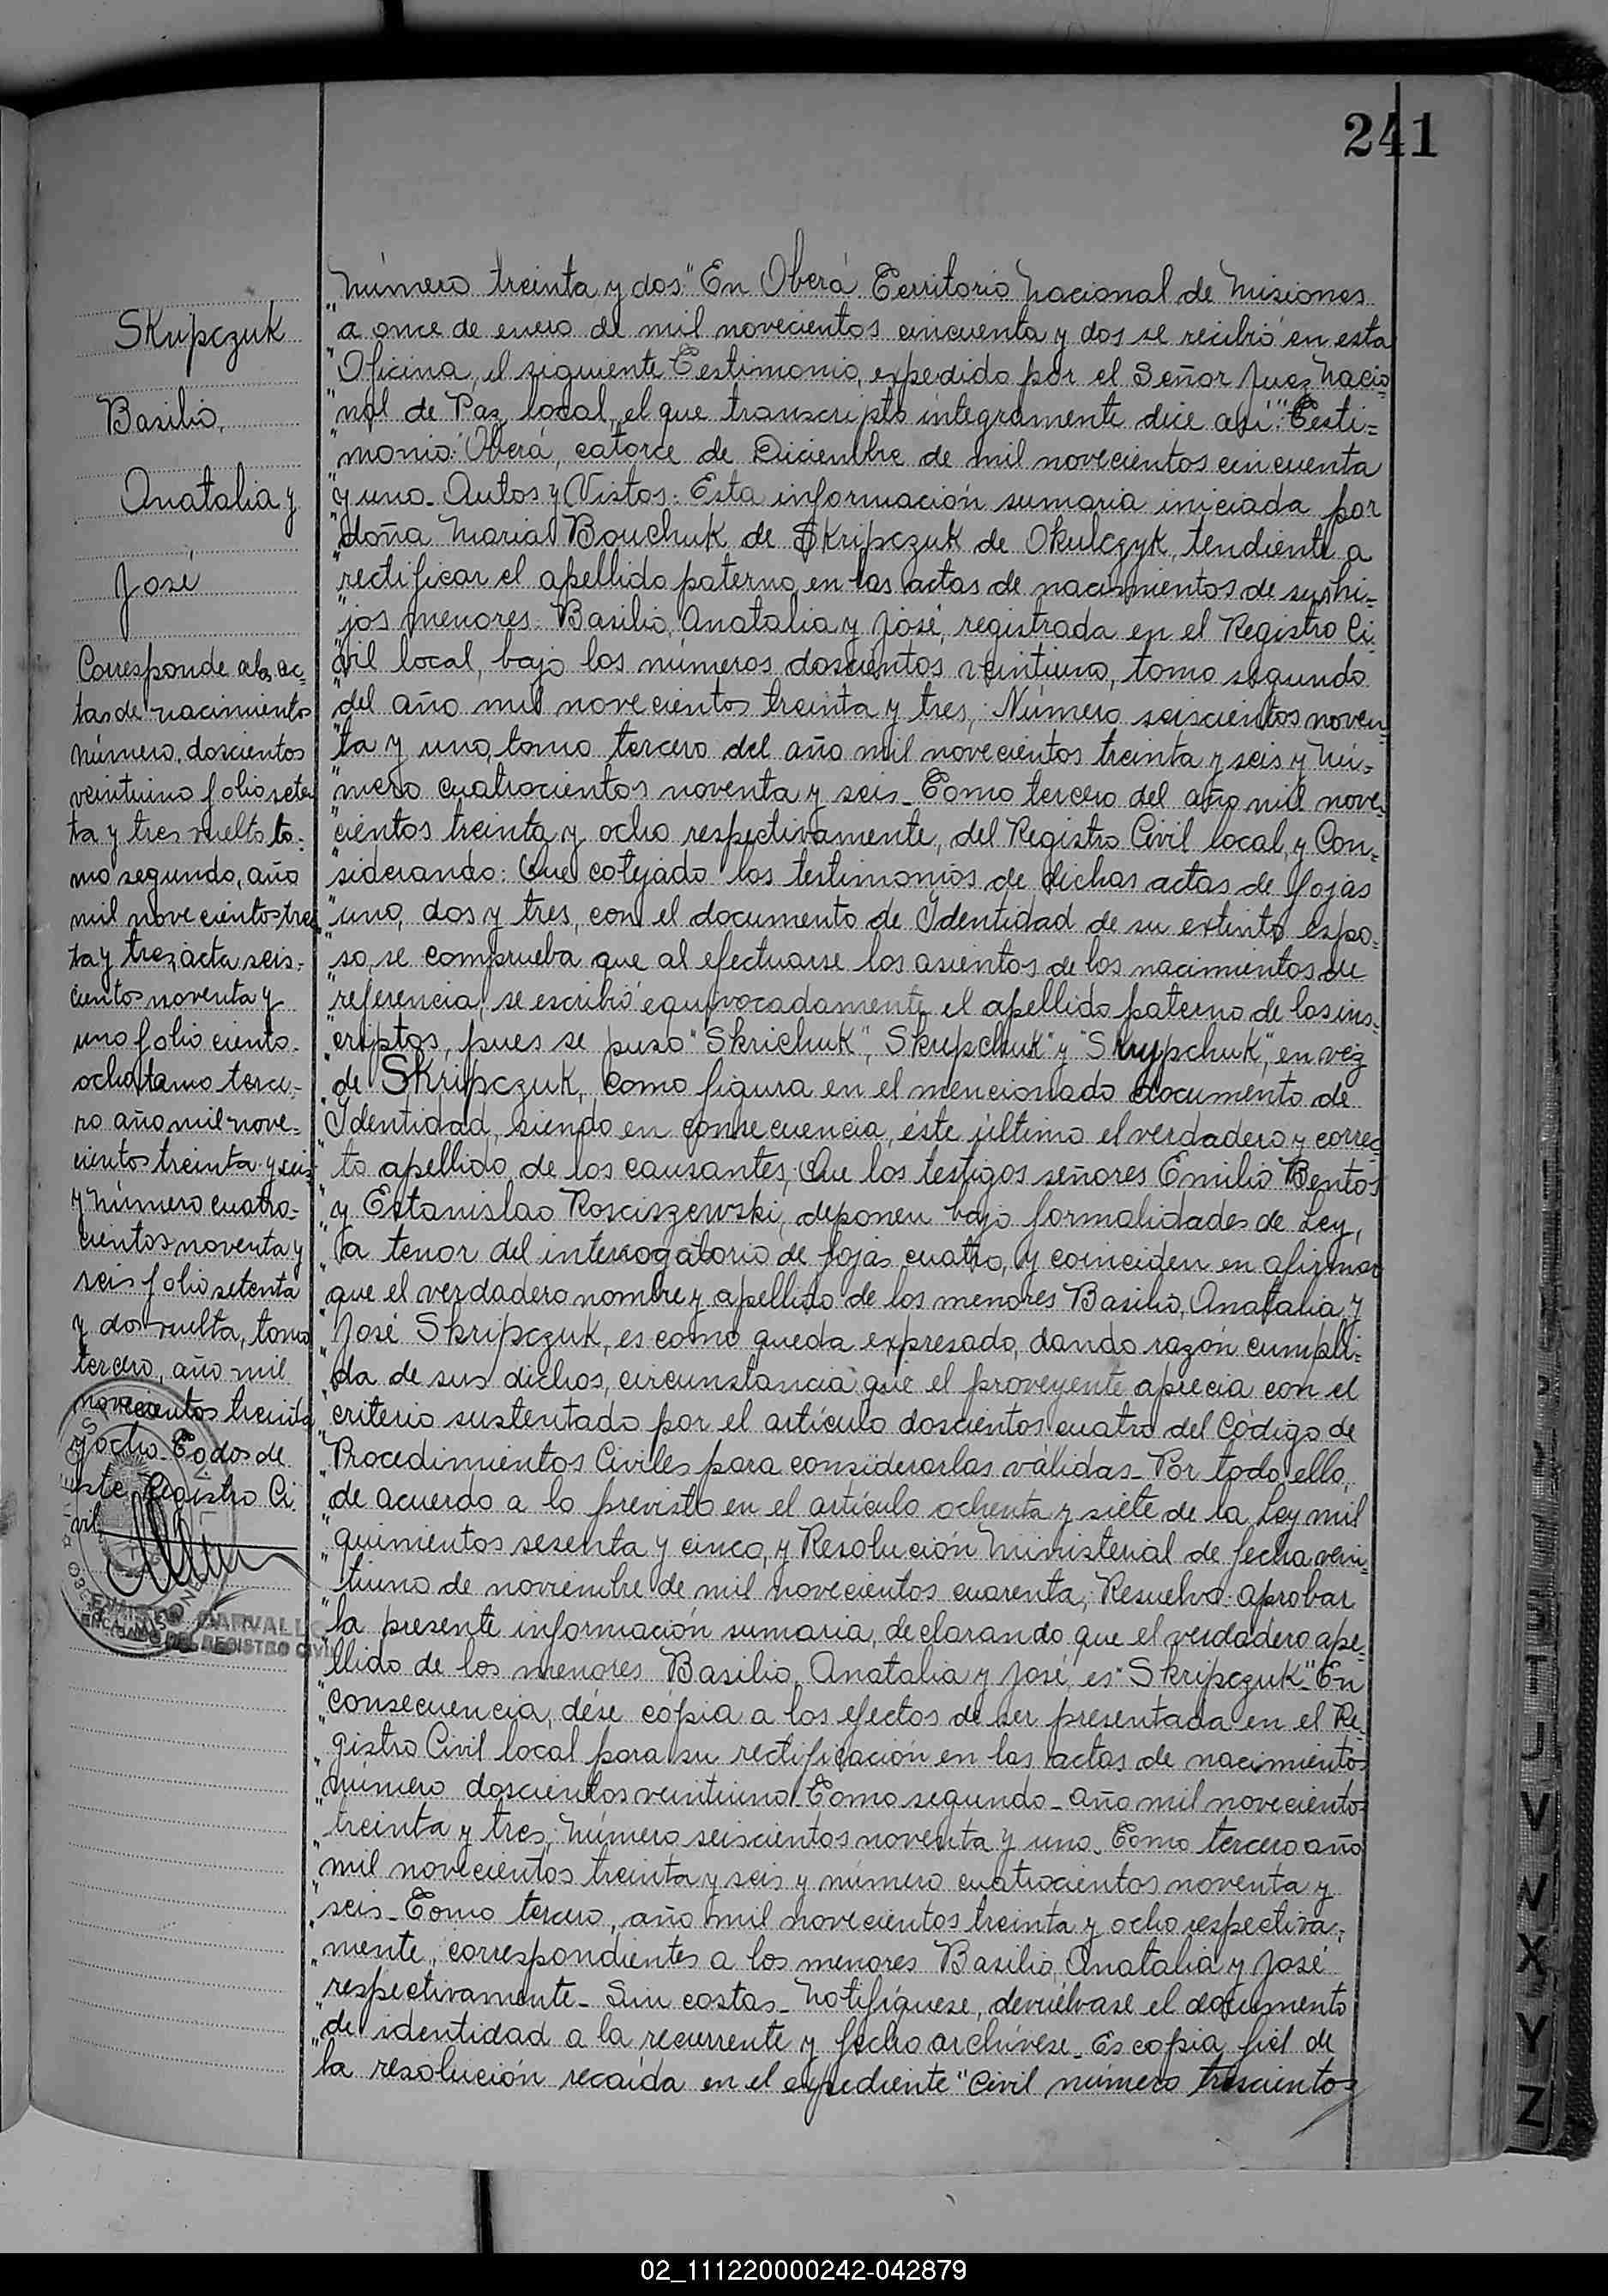 241
Skripczuk
Basilio,
Anatalia y
José
Corresponde a las ac-
tas de nacimientos
número doscientos
veintiuno folio seten
ta y tres vuelto to-
mo segundo, año
mil novecientos trein
ta y tres, acta seis-
cientos noventa y
uno folio ciento
ocho tomo terce-
ro año mil nove-
cientos treinta y seis
y número cuatro-
cientos noventa y
seis folio setenta
y dos vuelta, tomo
tercero, año mil
novecientos treinta
y ocho. Todos de
este Registro Ci-
vil.
CARVALLO
ENCARGADO DEL REGISTRO CIVIL
Número treinta y dos" En Oberá Territorio Nacional de Misiones
"a once de enero de mil novecientos cincuenta y dos se recibió en esta
"Oficina, el siguiente Testimonio, expedido por el Señor Juez Nacio-
"nal de Paz local, el que transcripto íntegramente dice así: "Testi=
"monio: Oberá, catorce de Diciembre de mil novecientos cincuenta
"y uno_ Autos y Vistos: Esta información sumaria iniciada por
"doña Maria Bouchuk de Skripczuk de Okulczyk, tendiente a
"rectificar el apellido paterno en las actas de nacimientos de sus hi-
"jos menores: Basilio, Anatalia y José, registrada en el Registro Ci-
"vil local, bajo los números doscientos veintiuno, tomo segundo
"del año mil novecientos treinta y tres; Número seiscientos noven-
"ta y uno, tomo tercero del año mil novecientos treinta y seis y Nú-
"mero cuatrocientos noventa y seis_ Tomo tercero del año mil nove-
"cientos treinta y ocho respectivamente, del Registro Civil local, y Con-
"siderando: Que cotejado los testimonios de dichas actas de fojas
"uno, dos y tres, con el documento de Identidad de su extinto espo-
"so, se comprueba que al efectuarse los asientos de los nacimientos de
"referencia, se escribió equivocadamente el apellido paterno de los ins-
"criptos, pues se puso "Skrichuk", "Skrepchuk" y "Skrypchuk", en vez
"de Skripczuk, como figura en el mencionado documento de
"Identidad, siendo en consecuencia, éste último el verdadero y correc-
"to apellido de los causantes; Que los testigos señores Emilio Bentos
"y Estanislao Rosciszewski, deponen bajo formalidades de Ley,
"a tenor del interrogatorio de fojas cuatro, y coinciden en afirmar
"que el verdadero nombre y apellido de los menores Basilio, Anatalia y
"José Skripczuk, es como queda expresado, dando razón cumpli-
"da de sus dichos, circunstancia que el proveyente aprecia con el
"criterio sustentado por el artículo doscientos cuatro del Código de
"Procedimientos Civiles para considerarlas válidas_ Por todo ello,
"de acuerdo a lo previsto en el artículo ochenta y siete de la Ley mil
"quinientos sesenta y cinco, y Resolución Ministerial de fecha vein-
"tiuno de noviembre de mil novecientos cuarenta, Resuelvo: aprobar
"la presente información sumaria, declarando que el verdadero ape-
"llido de los menores Basilio, Anatalia y José, es "Skripczuk"_ En
"consecuencia, dése cópia a los efectos de ser presentada en el Re-
"gistro Civil local para su rectificación en las actas de nacimientos
"número doscientos veintiuno_ Tomo segundo_ año mil novecientos
"treinta y tres; Número seiscientos noventa y uno_ Tomo tercero año
"mil novecientos treinta y seis y número cuatrocientos noventa y
"seis_ Tomo tercero, año mil novecientos treinta y ocho respectiva-
"mente, correspondientes a los menores Basilio, Anatalia y José
"respectivamente_ Sin costas_ Notifíquese, devuélvase el documento
"de identidad a la recurrente y fecho archívese_ Es copia fiel de
"la resolución recaída en el expediente "Civil número trescientos
V
X
Y
Z
02_111220000242-042879